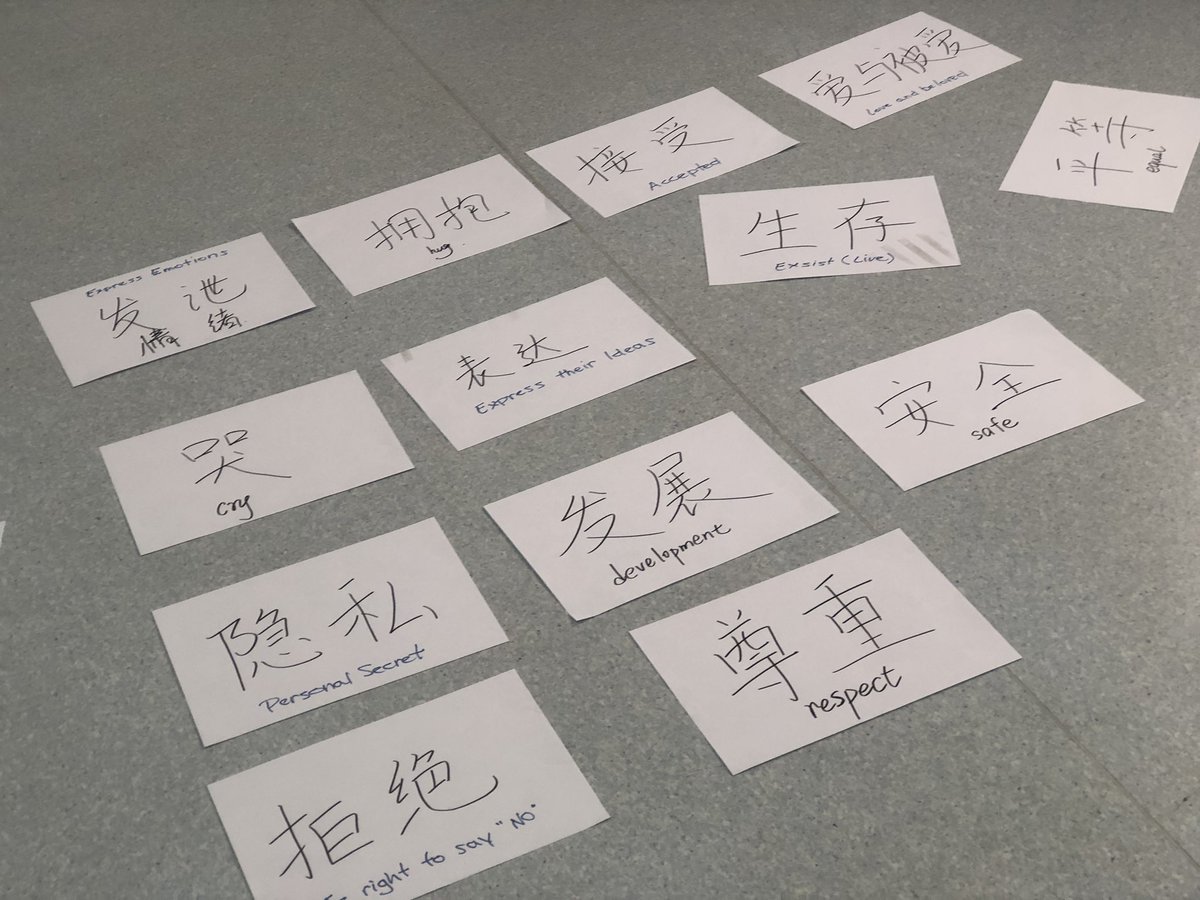 爱与被爱
Love and be loved
平等
equal
接受
Accepted
生存
Exsist (Live)
拥抱
hug.
Express Emotions
发泄
情绪
表达
Express their Ideas
安全
safe
哭
cry
发展
development
隐私
Personal Secret
尊重
respect
拒绝
right to say "NO"